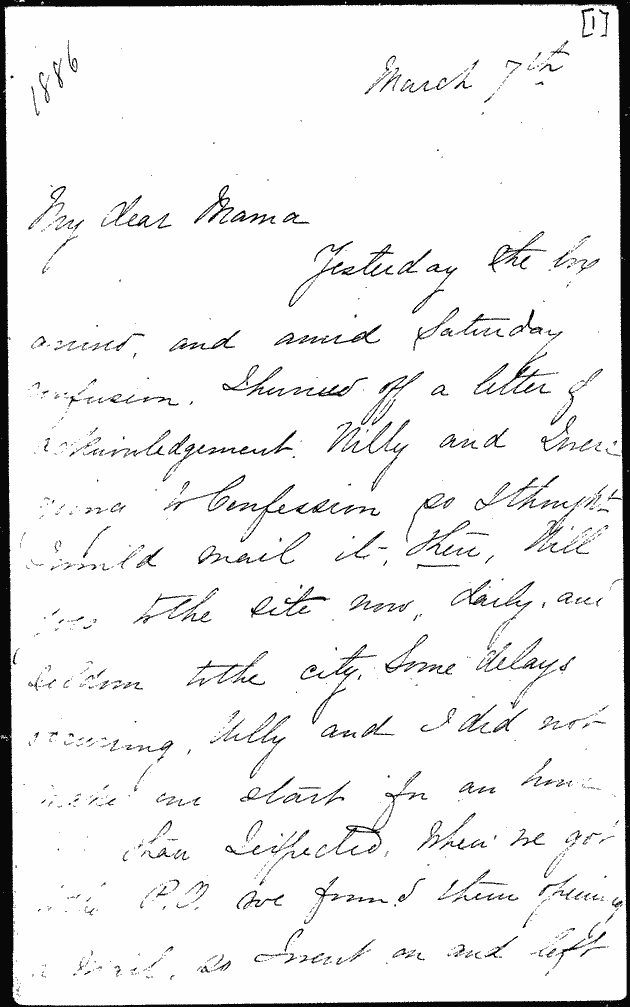 [1]
1886
March 7th
My dear Mama
Yesterday the box
arrived, and amid Saturday
confusion, I hurried off a letter of
acknowledgement. Willy and I were
going to Confession so I thought
I would mail it, then, Will
goes to the site now, daily, and
seldom to the city. Some delays
occurring, Willy and I did not
make our start for an hour
than I expected. When we got
to the P.O. we found them opening
a mail, so I went on and left